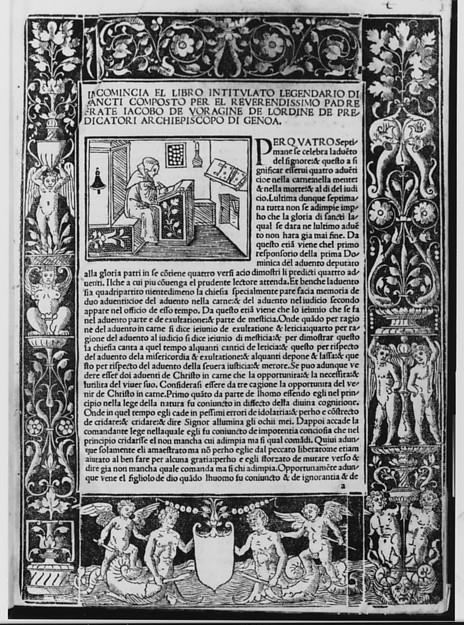 INCOMINCIA EL LIBRO INTITVLATO LEGENDARIO DI
SANCTI COMPOSTO PER EL REVERENDISSIMO PADRE
FRATE IACOBO DE VORAGINE DE LORDINE DE PRE-
DICATORI ARCHIEPISCOPO DI GENOA.
PER QVATRO Septi
mane se celebra laduẽto
del signore:& questo a si
gnificar esserui quatro aduẽti
cioe nella carne:nella mente:
& nella morte:& al di del iudi
cio. Lultima dunque septima
na tutta non se adimpie imp
ho che la gloria di sancti la
qual se dara ne lultimo aduẽ
to non hara gia mai fine. Da
questo etiã viene chel primo
responsorio della prima Do
minica del aduento deputato
alla gloria patri in se cõtiene quattro versi acio dimostri li predicti quatro ad
uenti. Ilche a cui piu cõuenga el prudente lectore attenda. Et benche laduento
sia quadripartito nientedimeno la chiesia specialmente pare facia memoria de
duo aduenti:cioe del aduento nella carne:& del aduento nel iudicio secondo
appare nel officio de esso tempo. Da questo etiã viene che lo ieiunio che se fa
nel aduento parte e de exultatione:& parte de mesticia. Onde quãdo per ragio
ne del aduento in carne si dice ieiunio de exultatione & leticia:quarto per ra
gione del aduento al iudicio si dice ieiunio di mesticia:& per dimostrar questo
la chiesia canta a quel tempo alquanti cantici de leticia:& questo per rispecto
del aduento dela misericordia & exultatione:& alquanti depone & lassa:& que
sto per rispecto del aduento della seuera iusticia:& merore. Se puo adunque ve
dere esse doi aduenti de Christo in carne che la opportunita:& la necessita:&
lutilita del viuer suo. Considerasi essere da tre cagione la opportunita del ve
nir de Christo in carne. Primo quãto da parte de lhomo essendo egli nel prin
cipio nella lege della natura fu conuincto in difecto della diuina cognitione.
Onde in quel tempo egli cade in pessimi errori de idolatria:& perho e cõstrecto
de cridare:& cridare:& dire Signor allumina gli ochii mei. Dappoi accade la
comandante lege nellaquale egli fu conuincto de impotentia conciosia che nel
principio cridasse el non mancha cui adimpia ma si qual comãdi. Quiui adun
que solamente eli amaestrato ma nõ perho eglie dal peccato liberato:ne etiam
aiutato al ben fare per alcuna gratia:perho e egli sforzato de mutare verso &
dire gia non mancha quale comanda ma si chi adimpia. Opportunamẽte adun
que vene el figliolo de dio quãdo lhuomo fu coniuncto & de ignorantia & de
a